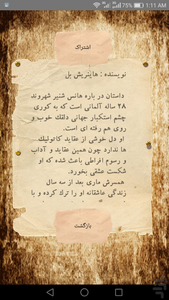 75% 1:11 AM
اشتراک
نویسنده : هاینریش بل
داستان در باره هانس شنیر شهروند
۲۸ ساله آلمانی است که به کوری
چشم استکبار جهانی دلقك خوب و
روی هم رفته ای است.
او دل خوشی از عقاید کاتولیك
ها ندارد چون همین عقاید و آداب
و رسوم افراطی باعث شده که او
شکست عشقی بخورد.
همسرش ماری بعد از سه سال
زندگی عاشقانه او را ترك کرده و با
بازگشت